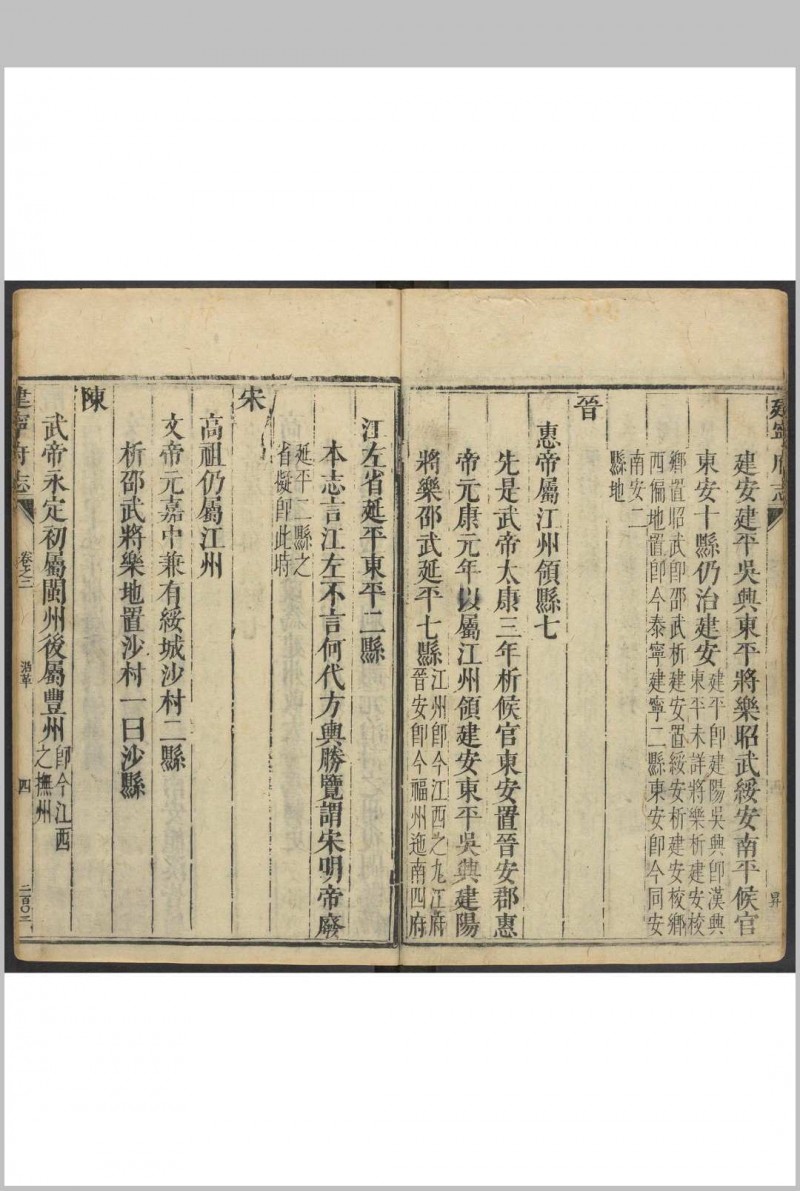 建寧府志
昇
建安建平吳興東平將樂昭武綏安南平候官
東安十縣仍治建安建平卽建陽吳興卽漢興
東平未詳將樂析建安校
鄉置昭武卽邵武析建安置綏安析建安校鄉
西偏地置卽今泰寧建寧二縣東安卽今同安
南安二
縣地
晉
惠帝屬江州領縣七
先是武帝太康三年析候官東安置晉安郡惠
帝元康元年以屬江州領建安東平吳興建陽
將樂邵武延平七縣江州卽今江西之九江府
晉安卽今福州迤南四府
江左省延平東平二縣
本志言江左不言何代方輿勝覽謂宋明帝廢
延平二縣之
省擬卽此時
宋
高祖仍屬江州
文帝元嘉中兼有綏城沙村二縣
析邵武將樂地置沙村一曰沙縣
陳
武帝永定初屬閩州後屬豐州卽今江西
之撫州
建寧府志
卷之三
沿革
四
二百〇二